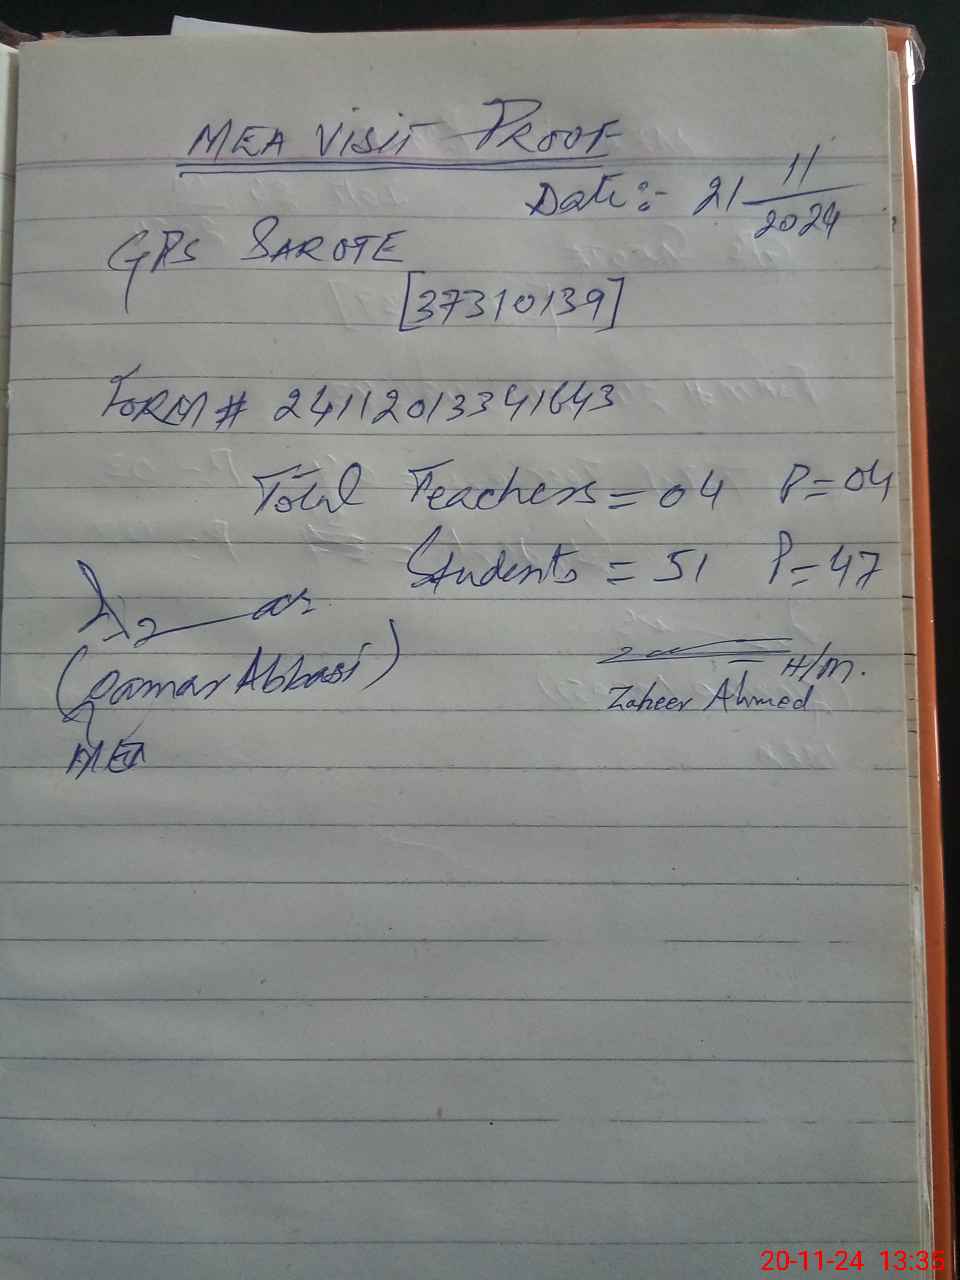 MEA VISIT PROOF
Date:- 21 11/2024
GPS SAROTE
[37310139]
FORM# 24112013341643
Total Teachers = 04 P=04
Students = 51 P=47
(Qamar Abbasi)
MEA
H/M.
Zaheer Ahmed
20-11-24 13:35